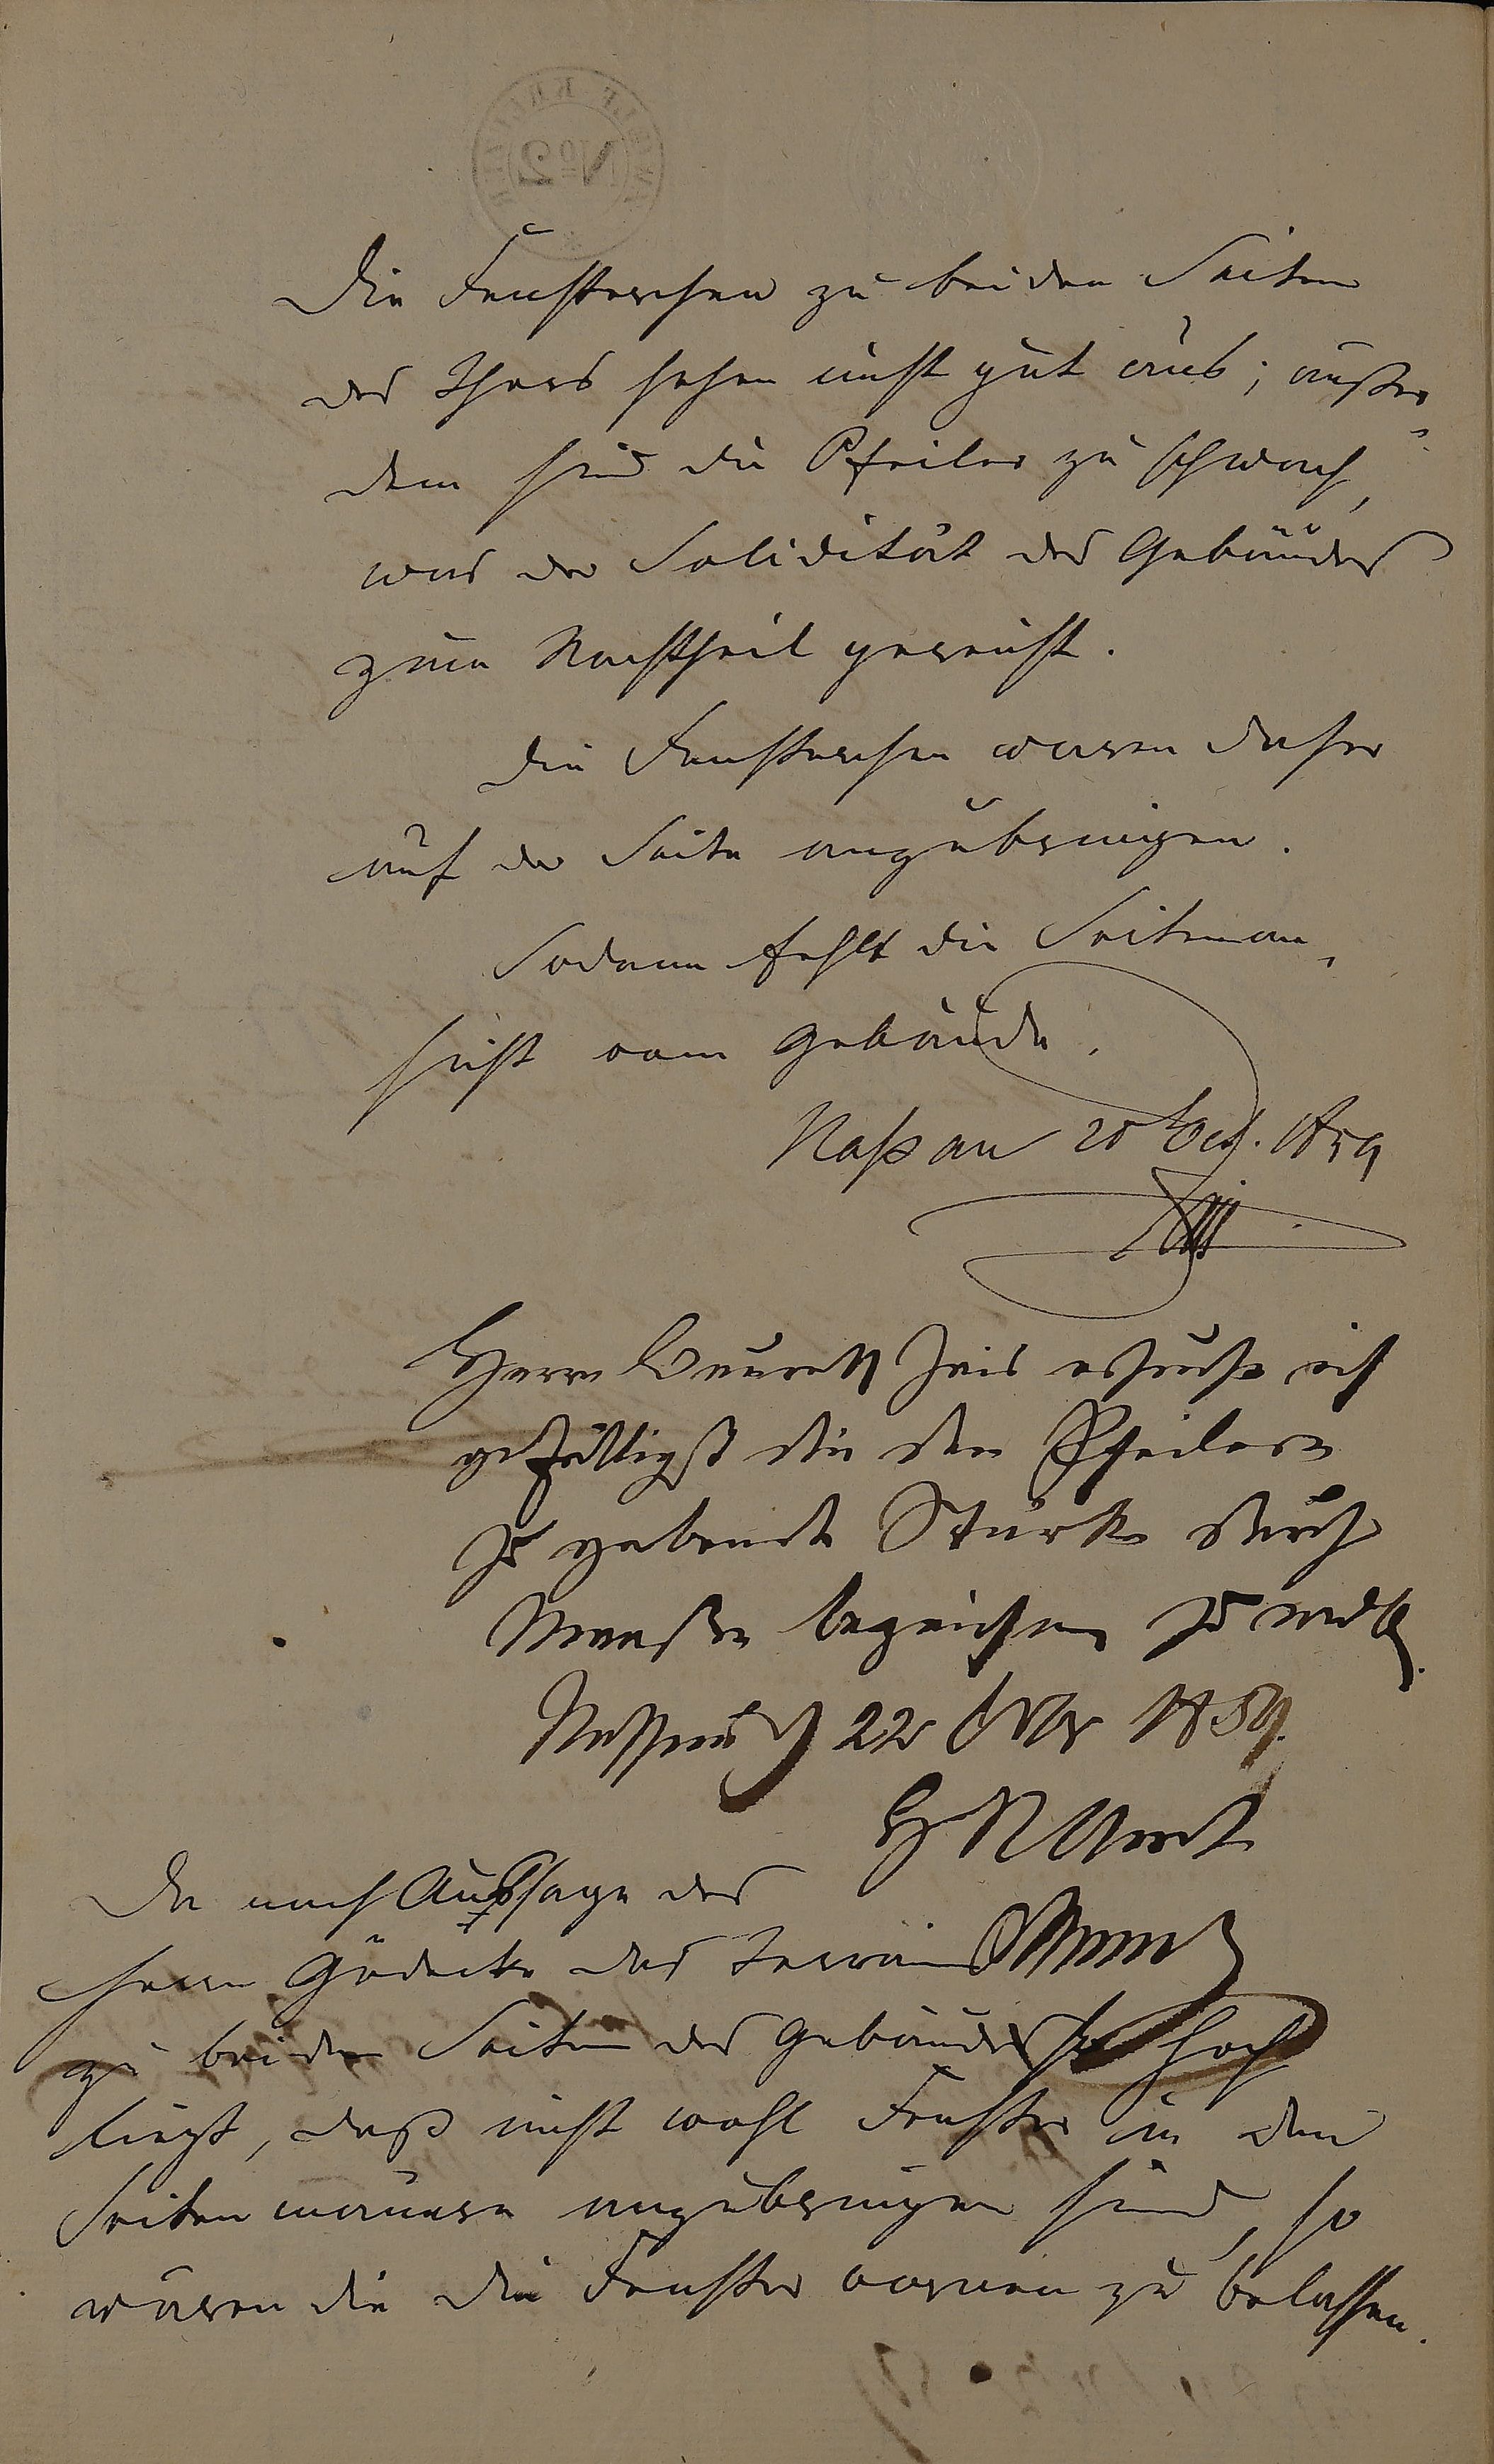 Die Fensterchen zu beiden Seiten
des Thors sehen nicht gut aus; außer-
dem sind die Pfeiler zu schwach,
was der Solidität des Gebäudes
zum Nachtheil gereicht.
Die Fensterchen wären daher
auf der Seite anzubringen.
Sodann fehlt die Seitenan-
sicht vom Gebäude.
Nassau 20 Oct. 1859
Herrn Baurath Zais ersuche ich
gefälligst die den Pfeilern
zu gebende Stärke durch
Maaße bezeichnen zu wollen.
Nassau 22 1859.
Da nach Aussage des
Herrn Gödecke das Terrain
zu beiden Seiten des Gebäudes so hoch
liegt, daß nicht wohl Fenster in den
Seitenmauern anzubringen sind, so
wären die die Fenster vornen zu belassen.